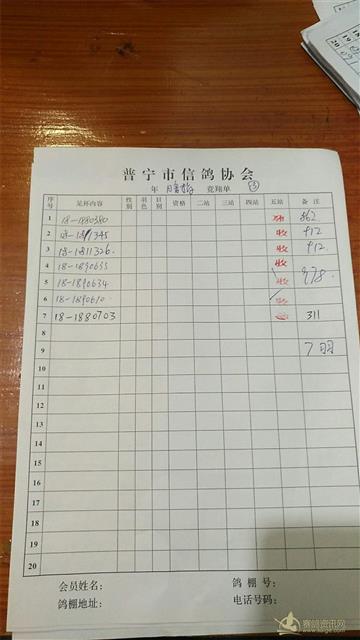 普宁市信鸽协会
年 竞翔单 ③
序号 足环内容 性别 羽色 目别 资格 二站 三站 四站 五站 备注
1 18-1880380 862
2 收 912
3 18-1811326. 收 912.
4 18-1890655 收
5 18-1890634 收 978.
6 18-1890610 收
7 18-1880703 311
8
9 7羽
10
11
12
13
14
15
16
17
18
19
20
会员姓名: 鸽棚号:
鸽棚地址: 电话号码:
赛鸽资讯网